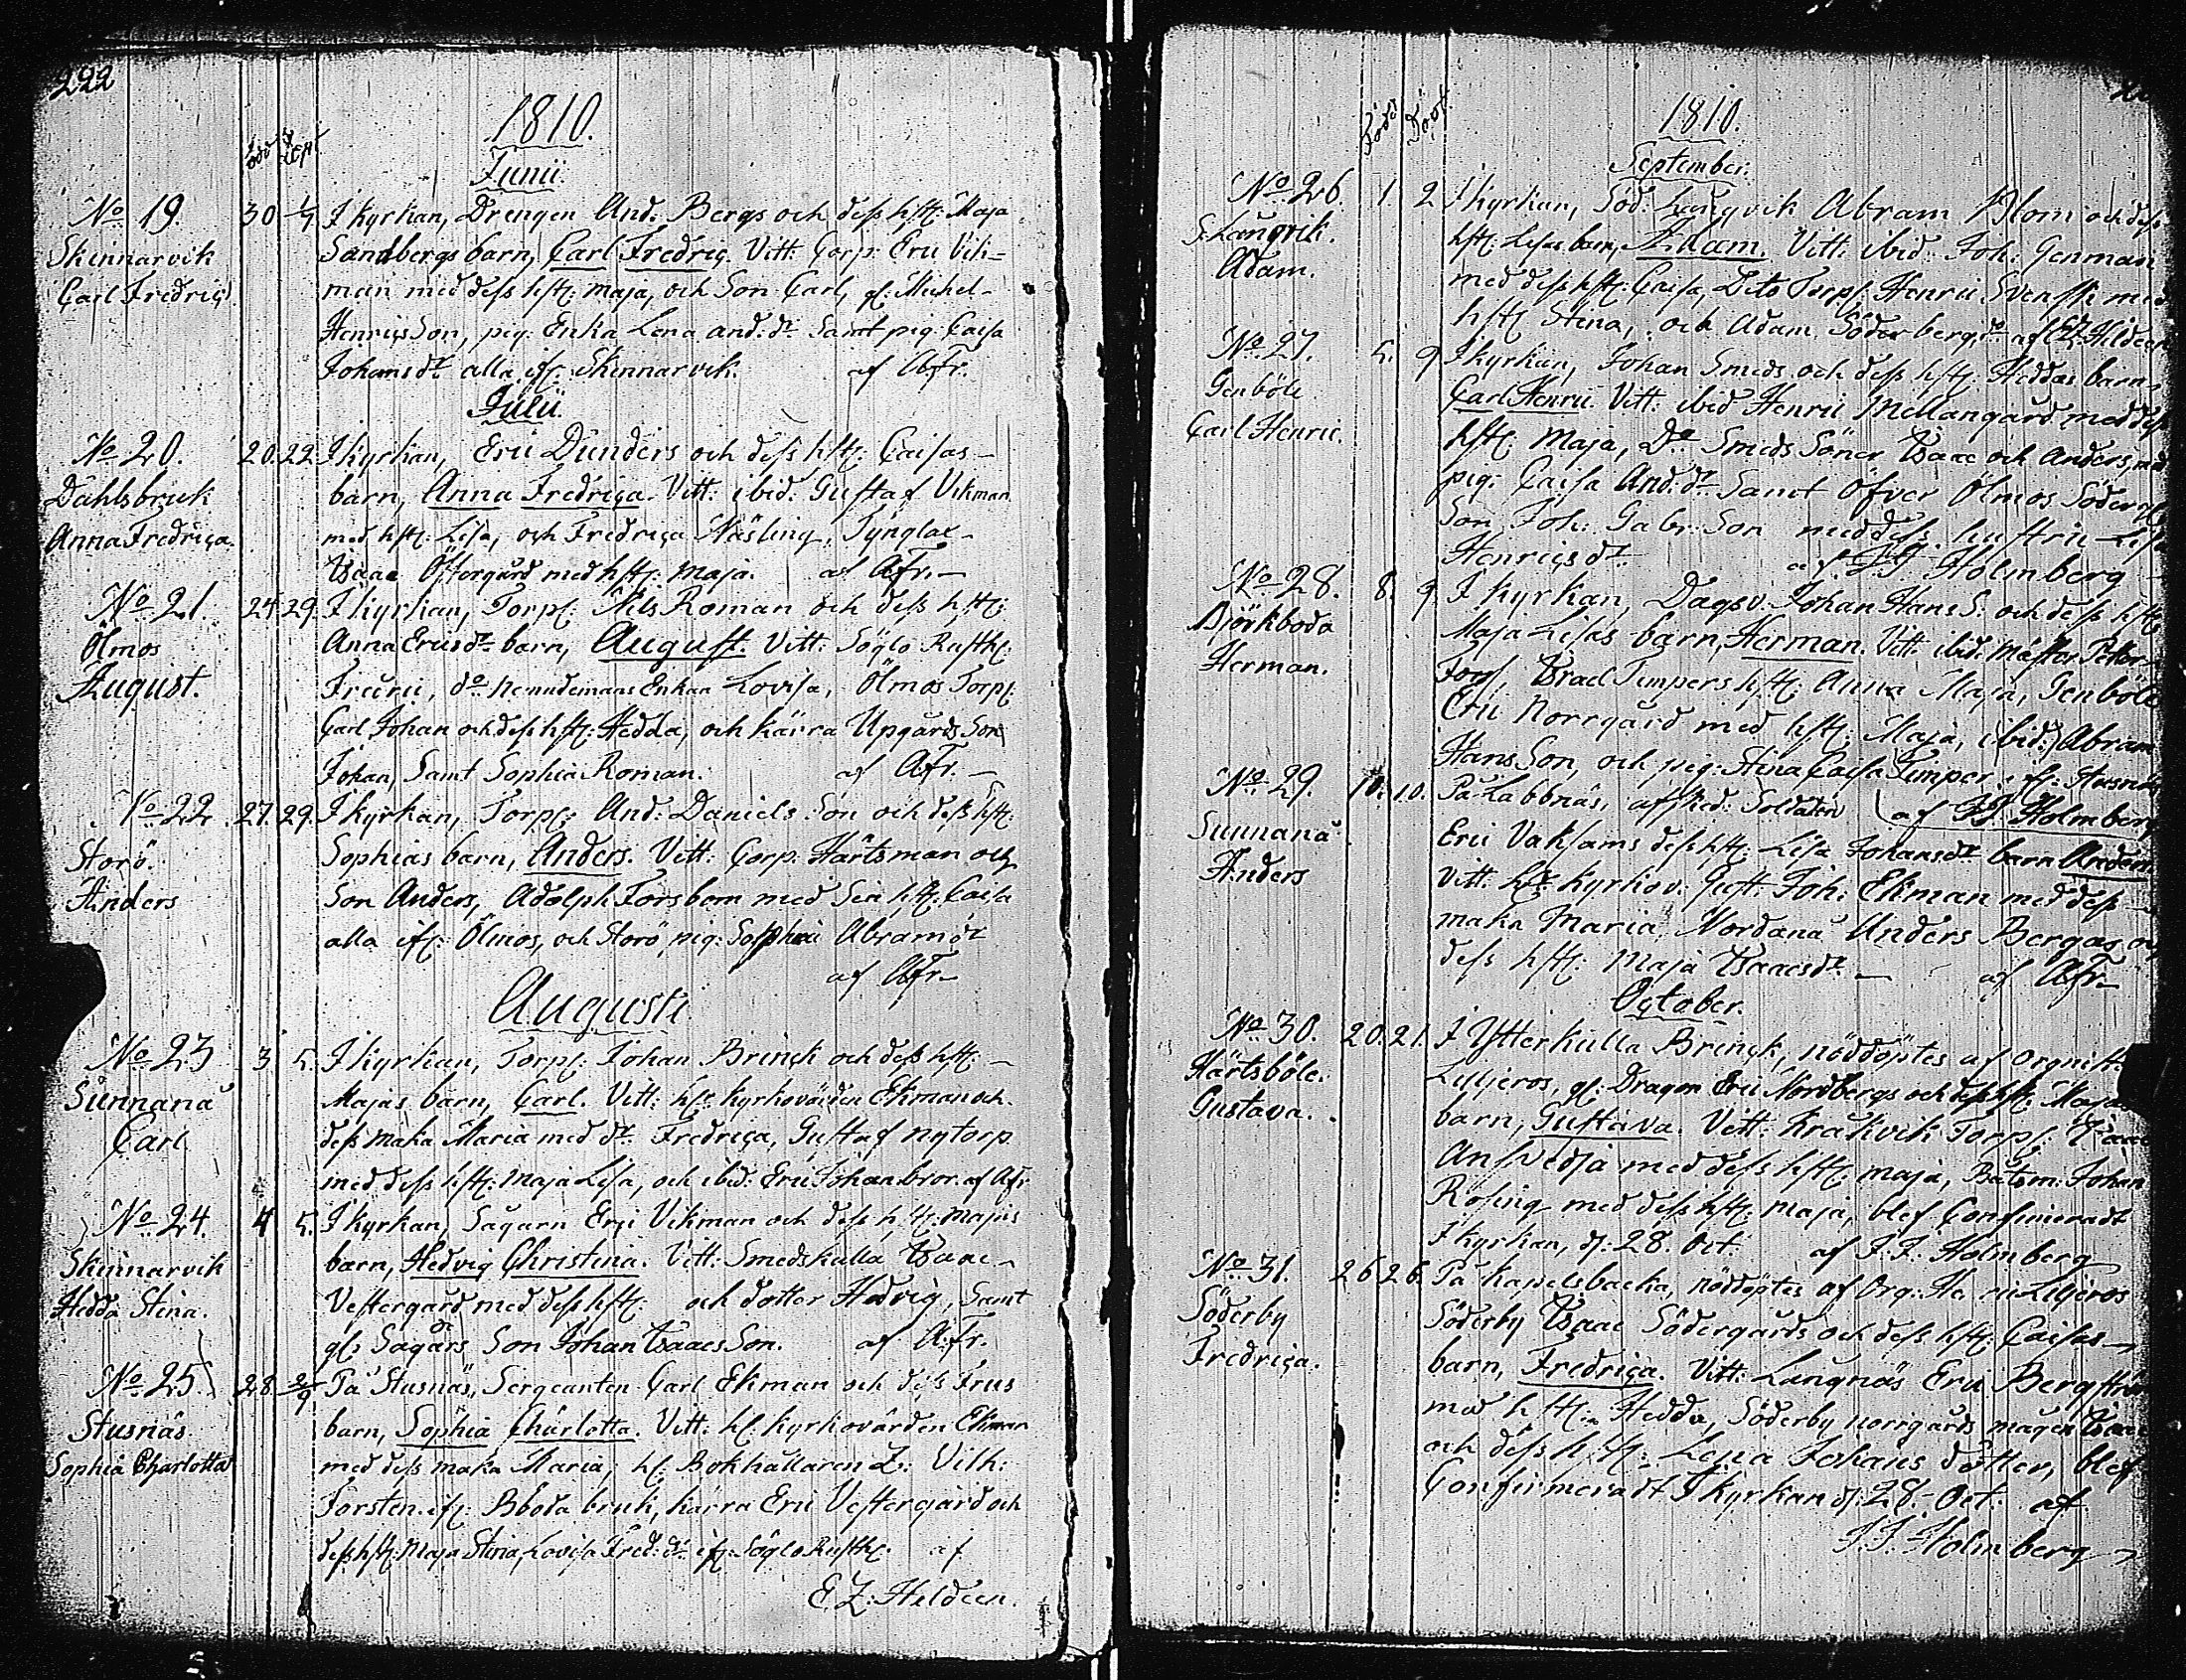 222
1810.
Junii.
No 19. 30 1/7 I kyrkan, Drengen And: Bergs och dess hst: Maja
Skinnarvik Sandbergs barn, Carl Fredric. Vitt: Corp: Eric Vik=
Carl Fredric man med dess hst: Maja, och Son Carl, gl: Michel
Henrics Son, pig: Enka Lena And: dr Samt pig: Caisa
Johans dr alla ifr: Skinnarvik. af AFr.
Julii.
No 20. 20. 22. I kyrkan, Eric Dunders och dess hst: Caisas
Dahlsbruk barn, Anna Fredrica. Vitt: ibid: Gustaf Vikman
Anna Fredrica. med hst: Lisa, och Fredrica Näsling, Tynglax
Isaac Östergård med hst: Maja. af AFr.
No 21. 24. 29. I kyrkan, Torp: Nils Roman och dess hst:
Ölmos Anna Ericsdr barn, August. Vitt: Söglo Rusth:
August. do Nemndemans Enkan Lovisa, Ölmos Torp:
Carl Johan och dess hst: Hedda, och Kärra Upgårds Son
Johan, Samt Sophia Roman. af AFr.
No 22. 27. 29. I kyrkan, Torp: And: Daniels Son och dess hst:
Storö. Sophias barn, Anders. Vitt: Corp: Härtsman och
Anders Son Anders, Adolph Forsbom med Sin hst: Caisa
alla ifr: Ölmos, och Storö pig: Sophia Abramsdr
af AFr
Augusti
No 23 3 5. I kyrkan, Torp: Johan Brinck och dess hst:
Sunnanå Majas barn, Carl. Vitt: hr kyrkovärden Ekman och
Carl dess maka Maria med dr Fredrica, Gustaf Nytorp
med dess hst: Maja Lisa, och ibid: Eric Johan bror. af AFr
No 24. 4 5. I kyrkan, Sågarn Eric Vikman och dess hst: Majas
Skinnarvik barn, Hedvig Christina. Vitt: Smedskulla Isaac
Hedda Stina. Vestergård med dess hst: och dotter Hedvig, Samt
gl: Sagars Son Johan Isaacs Son. af AFr.
No 25. 28 2/9 På Stusnäs, Sergeanten Carl Ekman och dess Frus
Stusnäs barn, Sophia Charlotta. Vitt: hr kyrkovärden Ekman
Sophia Charlotta med dess maka Maria, hr: Bokhållaren Z: Vilh:
Forsten ifr: Bboda bruk, Kärra Eric Vestergård och
dess hst: Maja Stina, Lovisa Fred: dr ifr: Söglo Rusth: af
E. Z: Hildeen.
Född Döpt
1810.
September.
No 26. 1. 2 I kyrkan, Söd: Langvik Abram Blom och dess
S: Langvik. hst: Lisas barn, Adam. Vitt: ibid: Joh: Genman
Adam. med dess hst: Caisa, Dito Torp: Henric Svensk med
hst: Stina, och Adam Söderberg do af EZ: Hildeen
No 27. 5. 9 I kyrkan, Johan Smeds och dess hst: Heddas barn
Genböle Carl Henric. Vitt: ibid Henric Mellangård med dess
Carl Henric. hst: Maja, Do Smeds Söner Isaac och Anders, med
pig: Caisa And: dr Samt Öfver Ölmos Söderg:
Son Joh: Gabr: Son med dess hustru Lisa
Henrics dr af J J Holmberg
No 28. 8. 9 I kyrkan, Dagsv. Johan Hans S. och dess hst:
Björkboda Maja Lisas barn, Herman. Vitt: ibid: Mäster Petter
Herman. Israel Timpers hst: Anna Maja, Genböle
Eric Norrgård med hst: Maja, ibid: Abram
Hans Son, och pig: Stina Caisa Timper ifr: Stusnäs
No 29. 10. 10. På Labbnäs, afsked: Soldaten af J J Holmberg
Sunnanå Eric Vaksams dess hst: Lisa Johansdr barn Anders
Anders Vitt: hr kyrkov: Joh: Ekman med dess
maka Maria. Nordanå Anders Bergas och
dess hst: Maja Isaacsdr af AFr
October.
No 30. 20. 21. I Ytterkulla Brinck, nöddöptes af Organist:
Härtsböle. Liljeros, gl: Dragon Eric Nordbergs och dess hst: Majas
Gustava. barn, Gustava. Vitt: Kråkvik Torp: Isaac
Ansvedja med dess hst: Maja, Båtsm: Johan
Rösing med dess hst: Maja, blef Confirmeradt
I kyrkan, d: 28. Oct. af J. J. Holmberg
No 31. 26 26. På Kapelsbacka, nöddöptes af Org: Liljeros
Söderby Söderby Isaac Södergårds och dess hst: Caisas
Fredrica. barn, Fredrica. Vitt: Långnäs Eric Bergström
med hst: Hedda, Söderby Norrgårds mågen Isaac
och dess hst: Lena Johans dotter, blef
Confirmeradt I kyrkan d: 28. Oct: af
J. J. Holmberg